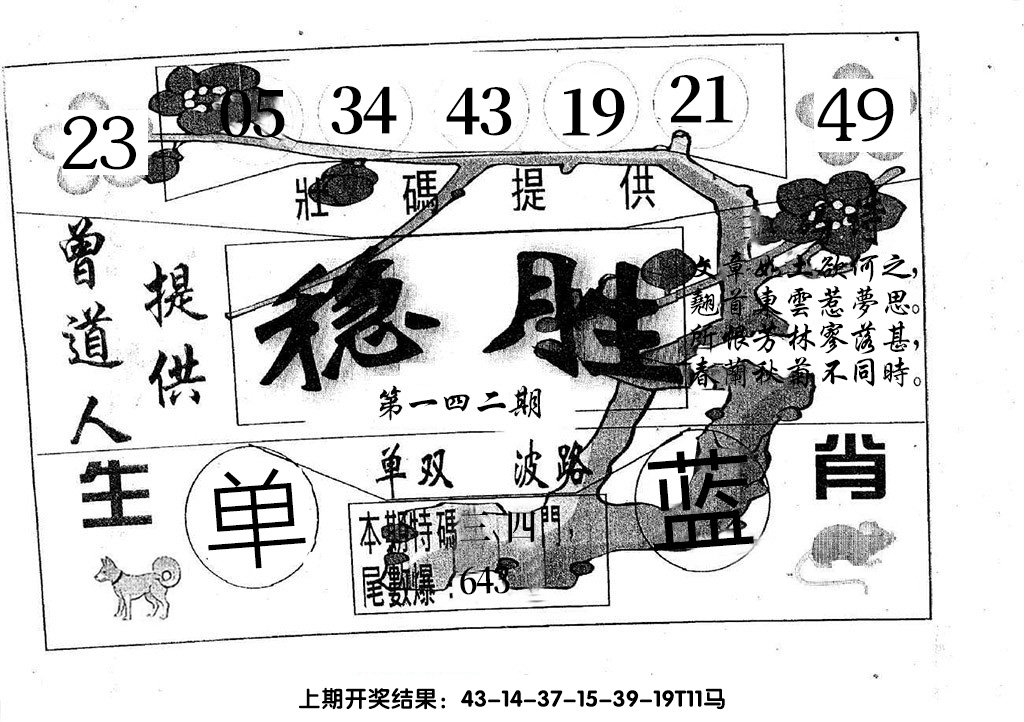 23 05 34 43 19 21 49
壯碼提供
曾道人
提供
特
文章如土欲何之，
翹首東雲惹夢思。
所恨芳林寥落甚，
春蘭秋菊不同時。
稳胜
第一四二期
单双 波路
生肖
单
蓝
本期特碼三、四門，
尾數爆：643
上期开奖结果：43-14-37-15-39-19T11马